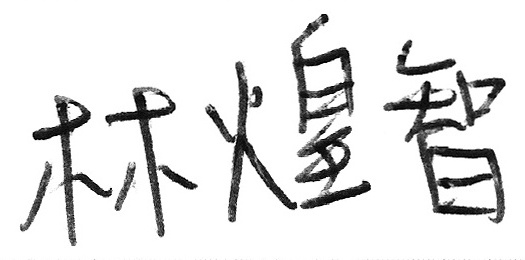 林煌智